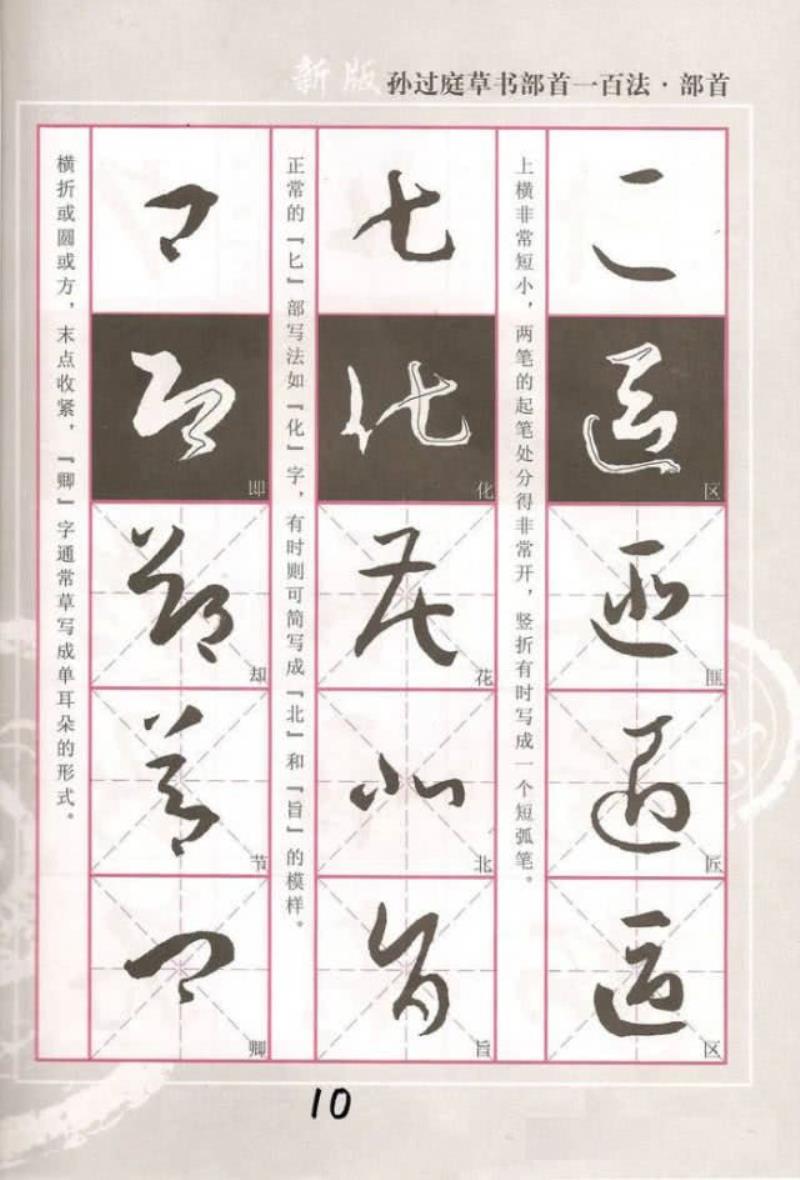 新版 孙过庭草书部首一百法·部首
区
匪
匠
区
上横非常短小，两笔的起笔处分得非常开，竖折有时写成一个短弧笔。
化
花
北
旨
正常的『匕』部写法如『化』字，有时则可简写成『北』和『旨』的模样。
即
却
节
卿
横折或圆或方，末点收紧，『卿』字通常草写成单耳朵的形式。
10